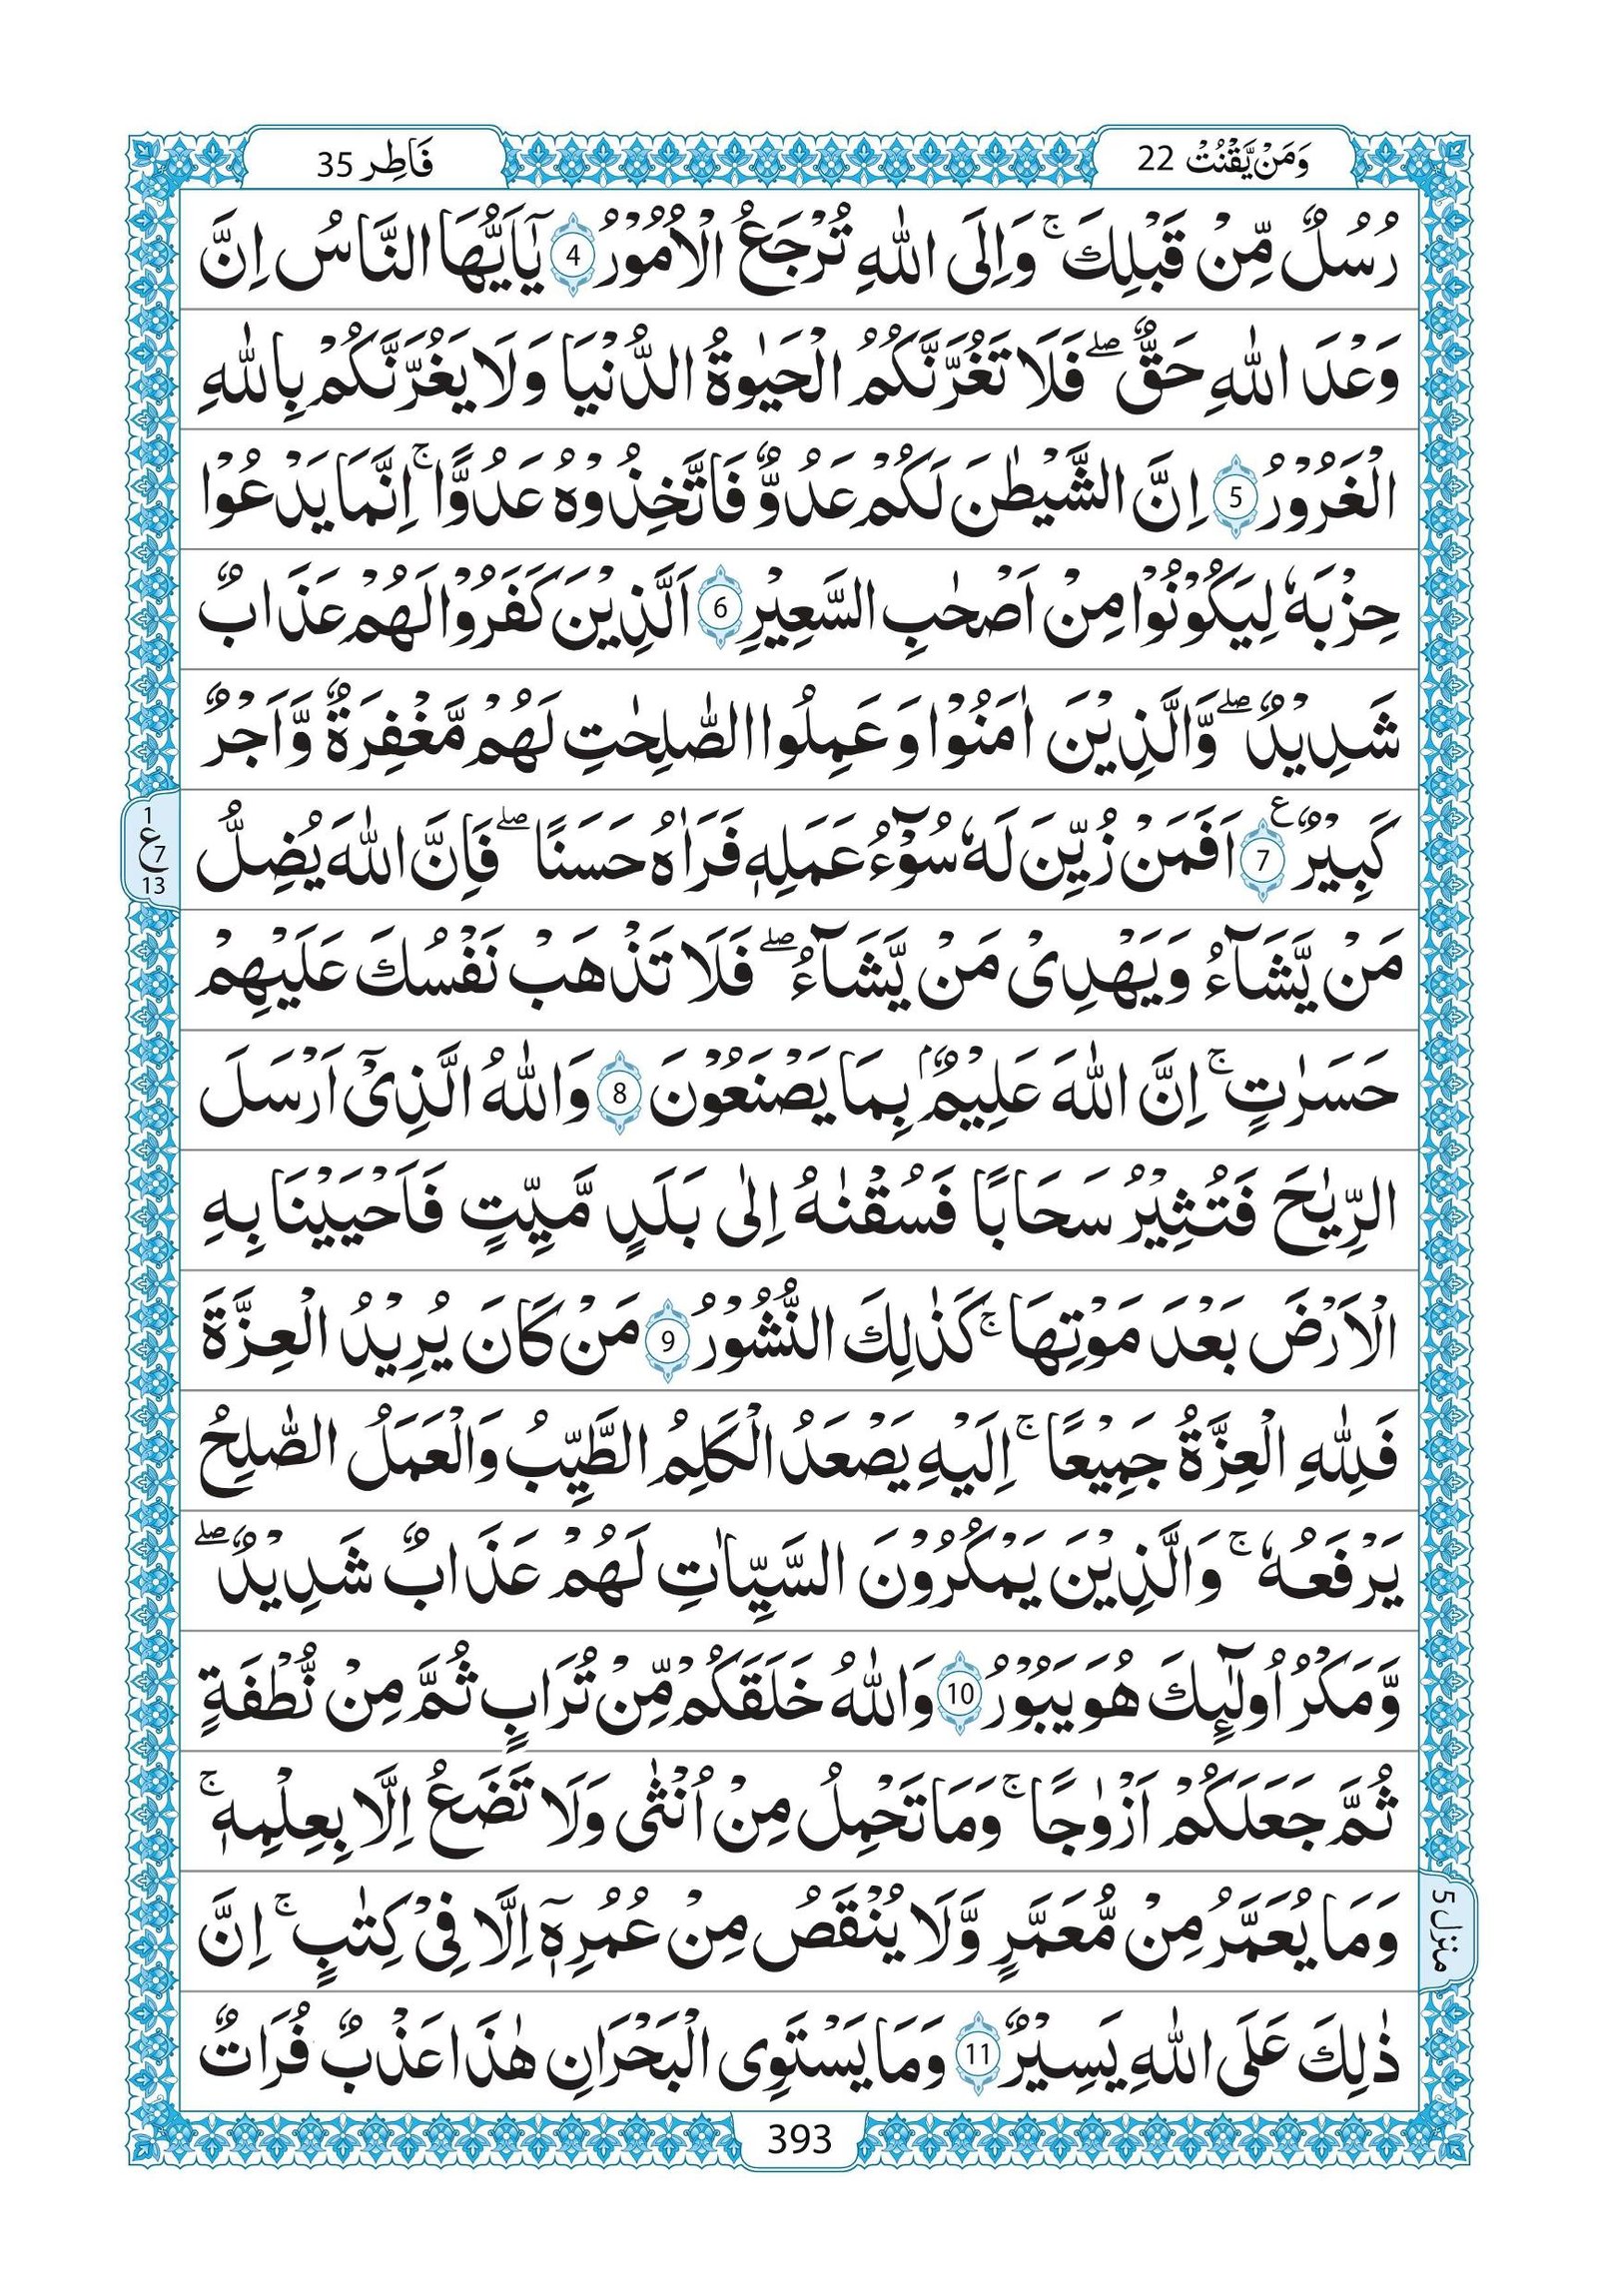 وَمَنْ يَّقْنُتْ 22
فَاطِر 35
رُسُلٌ مِّنْ قَبْلِكَ ۚ وَاِلَى اللّٰهِ تُرْجَعُ الْاُمُوْرُ 4 يٰٓاَيُّهَا النَّاسُ اِنَّ
وَعْدَ اللّٰهِ حَقٌّ ۖ فَلَا تَغُرَّنَّكُمُ الْحَيٰوةُ الدُّنْيَا وَلَا يَغُرَّنَّكُمْ بِاللّٰهِ
الْغَرُوْرُ 5 اِنَّ الشَّيْطٰنَ لَكُمْ عَدُوٌّ فَاتَّخِذُوْهُ عَدُوًّا ۚ اِنَّمَا يَدْعُوْا
حِزْبَهٗ لِيَكُوْنُوْا مِنْ اَصْحٰبِ السَّعِيْرِ 6 اَلَّذِيْنَ كَفَرُوْا لَهُمْ عَذَابٌ
شَدِيْدٌ ۖ وَّالَّذِيْنَ اٰمَنُوْا وَعَمِلُوا الصّٰلِحٰتِ لَهُمْ مَّغْفِرَةٌ وَّاَجْرٌ
كَبِيْرٌ ع 7 اَفَمَنْ زُيِّنَ لَهٗ سُوْٓءُ عَمَلِهٖ فَرَاٰهُ حَسَنًا ۖ فَاِنَّ اللّٰهَ يُضِلُّ
1
ع 7
13
مَنْ يَّشَآءُ وَيَهْدِىْ مَنْ يَّشَآءُ ۖ فَلَا تَذْهَبْ نَفْسُكَ عَلَيْهِمْ
حَسَرٰتٍ ۚ اِنَّ اللّٰهَ عَلِيْمٌۢ بِمَا يَصْنَعُوْنَ 8 وَاللّٰهُ الَّذِىْٓ اَرْسَلَ
الرِّيٰحَ فَتُثِيْرُ سَحَابًا فَسُقْنٰهُ اِلٰى بَلَدٍ مَّيِّتٍ فَاَحْيَيْنَا بِهِ
الْاَرْضَ بَعْدَ مَوْتِهَا ۚ كَذٰلِكَ النُّشُوْرُ 9 مَنْ كَانَ يُرِيْدُ الْعِزَّةَ
فَلِلّٰهِ الْعِزَّةُ جَمِيْعًا ۚ اِلَيْهِ يَصْعَدُ الْكَلِمُ الطَّيِّبُ وَالْعَمَلُ الصّٰلِحُ
يَرْفَعُهٗ ۚ وَالَّذِيْنَ يَمْكُرُوْنَ السَّيِّاٰتِ لَهُمْ عَذَابٌ شَدِيْدٌ ۖ
وَّمَكْرُ اُولٰٓئِكَ هُوَ يَبُوْرُ 10 وَاللّٰهُ خَلَقَكُمْ مِّنْ تُرَابٍ ثُمَّ مِنْ نُّطْفَةٍ
ثُمَّ جَعَلَكُمْ اَزْوٰجًا ۚ وَمَا تَحْمِلُ مِنْ اُنْثٰى وَلَا تَضَعُ اِلَّا بِعِلْمِهٖ ۚ
وَمَا يُعَمَّرُ مِنْ مُّعَمَّرٍ وَّلَا يُنْقَصُ مِنْ عُمُرِهٖٓ اِلَّا فِىْ كِتٰبٍ ۚ اِنَّ
منزل 5
ذٰلِكَ عَلَى اللّٰهِ يَسِيْرٌ 11 وَمَا يَسْتَوِى الْبَحْرَانِ هٰذَا عَذْبٌ فُرَاتٌ
393